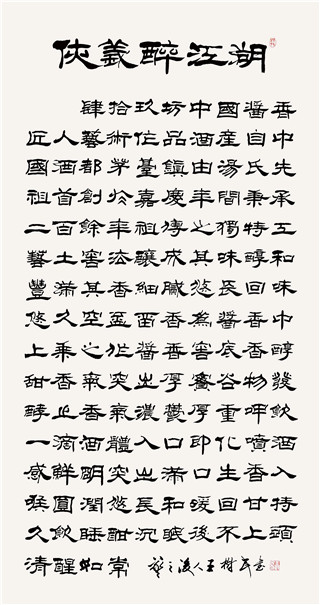 俠義醉江湖
肆拾玖坊中國醬香
匠人藝術位品酒産自中
國酒都茅臺鎮由湯氏先
祖首創於嘉慶年間秉承
二百餘年祖傳之獨特工
藝土窖法釀成其味醇和
豐滿其香細膩悠長回味
悠久空盃留香為醬香中
上乘之作醬香窖底香醇
甜香氣突出厚鬱谷物發
酵之香氣濃鬱厚重呷飲
一滴酒體入口即化噴酒
感鮮明突出滿口生香入
喉圓潤悠長和緩回甘持
久飲睡酣沉眠後不上頭
清醒如常 之後人王樹書